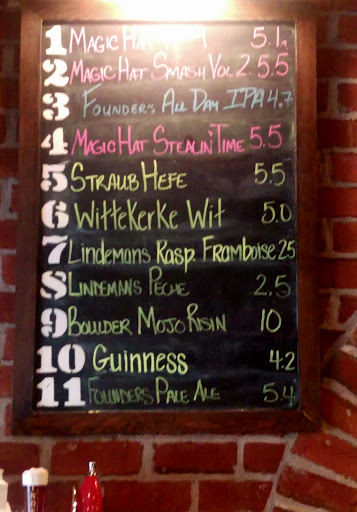 1 Magic Hat 5.1
2 Magic Hat Smash Vol 2. 5.5
3 Founder's All Day IPA 4.7
4 Magic Hat Stealin' Time 5.5
5 Straub Hefe 5.5
6 Wittekerke Wit 5.0
7 Lindemans Rasp. Framboise 2.5
8 Lindemans Peche 2.5
9 Boulder Mojo Risin 10
10 Guinness 4.2
11 Founders Pale Ale 5.4